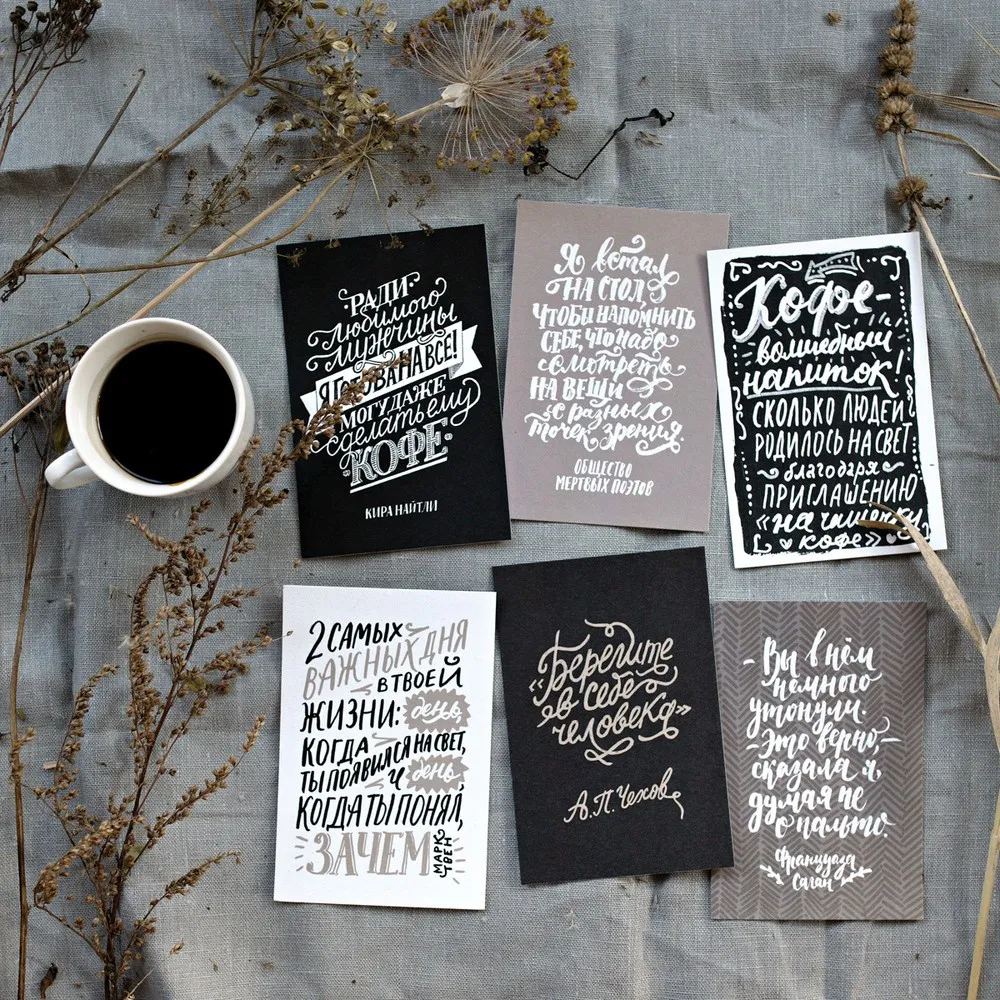 РАДИ
любимого
мужчины
Я ГОТОВА НА ВСЕ!
МОГУ ДАЖЕ
сделать ему
КОФЕ
КИРА НАЙТЛИ
Я встал
НА СТОЛ,
ЧТОБЫ НАПОМНИТЬ
СЕБЕ, ЧТО НАДО
смотреть
НА ВЕЩИ
с разных
точек зрения.
ОБЩЕСТВО
МЕРТВЫХ ПОЭТОВ
Кофе-
волшебный
напиток!
СКОЛЬКО ЛЮДЕЙ
РОДИЛОСЬ НА СВЕТ
благодаря
ПРИГЛАШЕНИЮ
«на чашечку
кофе»
2 САМЫХ
ВАЖНЫХ ДНЯ
В ТВОЕЙ
ЖИЗНИ: день,
КОГДА
ТЫ ПОЯВИЛСЯ НА СВЕТ,
И день,
КОГДА ТЫ ПОНЯЛ,
ЗАЧЕМ
МАРК
ТВЕН
«Берегите
в себе
человека»
А.П.Чехов
- Вы в нём
немного
утонули.
- Это верно, -
сказала я,
думая не
о пальто.
Франсуаза
Саган